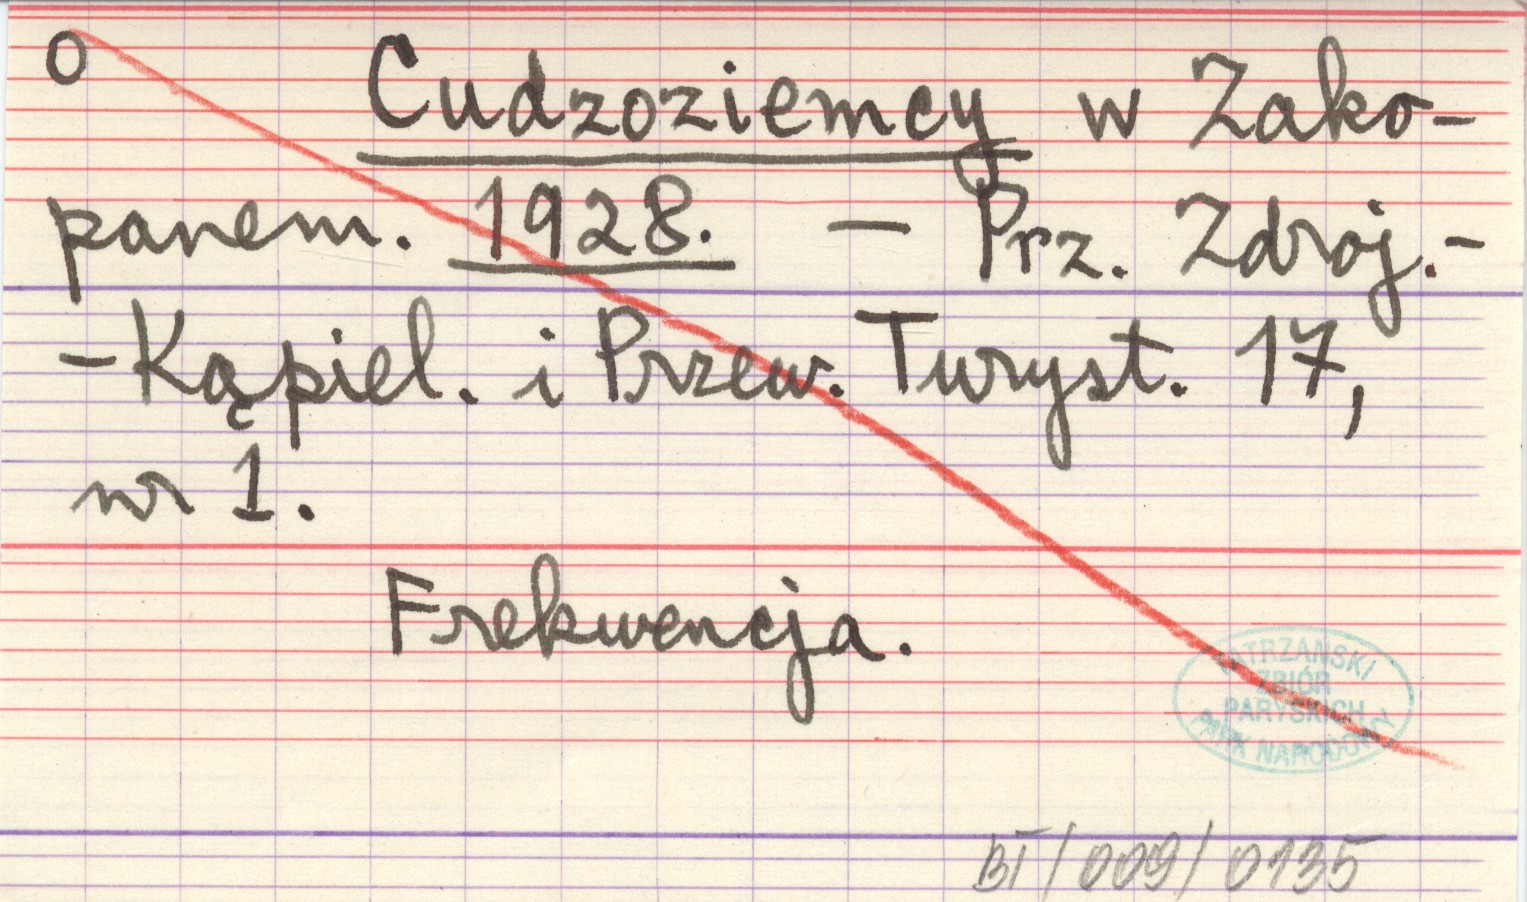 O Cudzoziemcy w Zako-
panem. 1928. – Prz. Zdroj.-
-Kąpiel. i Przew. Turyst. 17,
nr 1.
Frekwencja.
TATRZAŃSKI
ZBIÓR
PARYSKICH
PARK NARODOWY
BT/009/0135